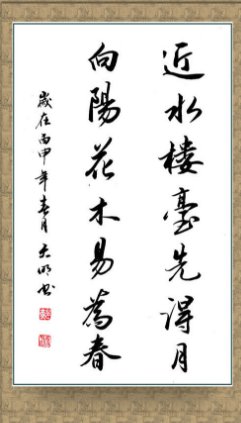 近水楼臺先得月
向陽花木易為春
歲在丙申年春月大明書